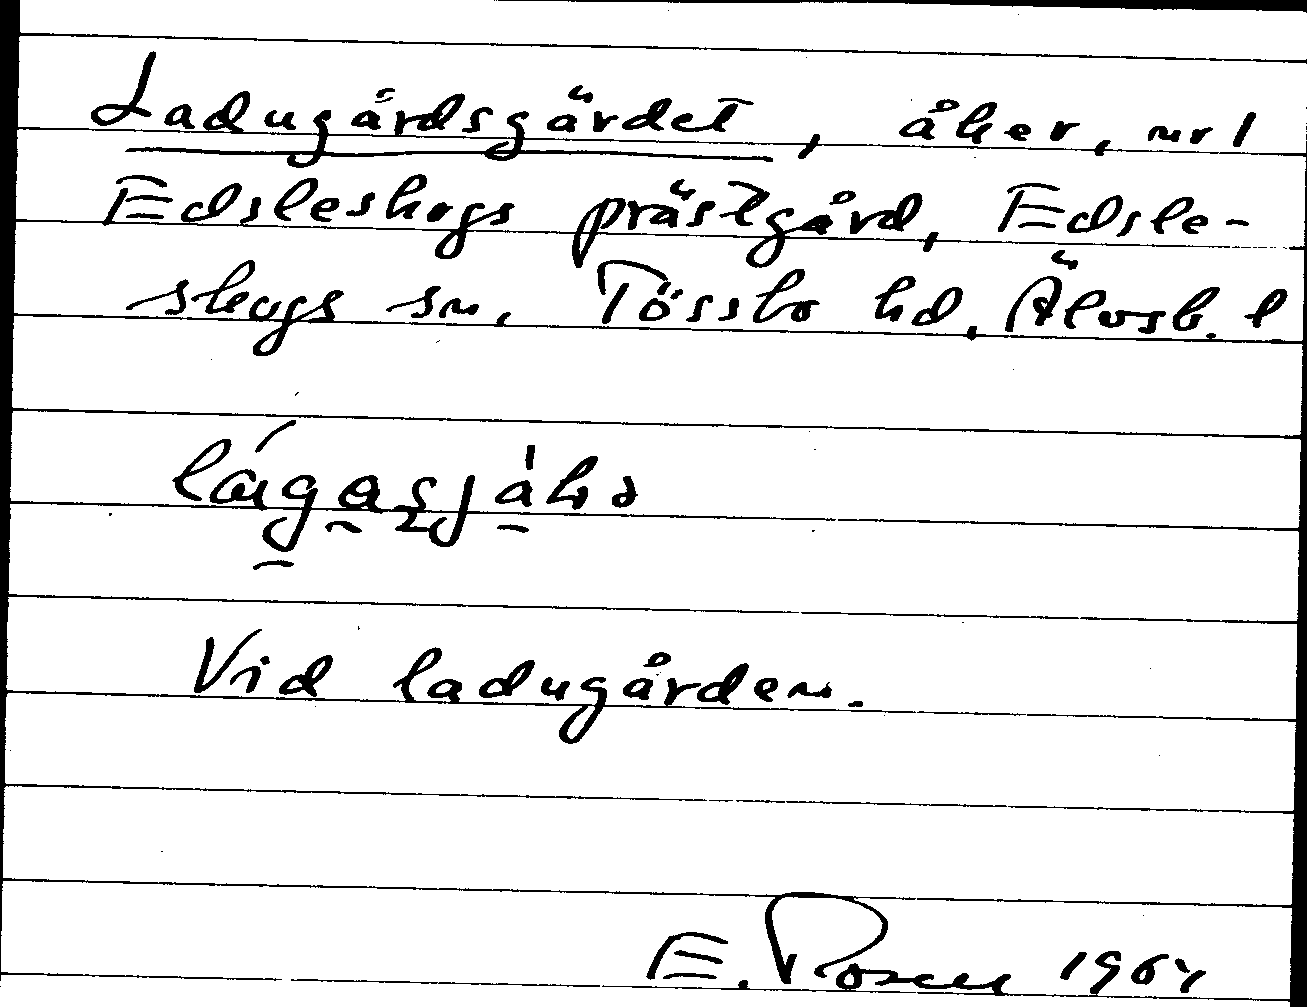 Ladugårdsgärdet, åker, nr 1
Edsleskogs prästgård, Edsle-
skogs sn, Tössbo hd, Älvsb. l
Vid ladugården.
E. Rosén 1964